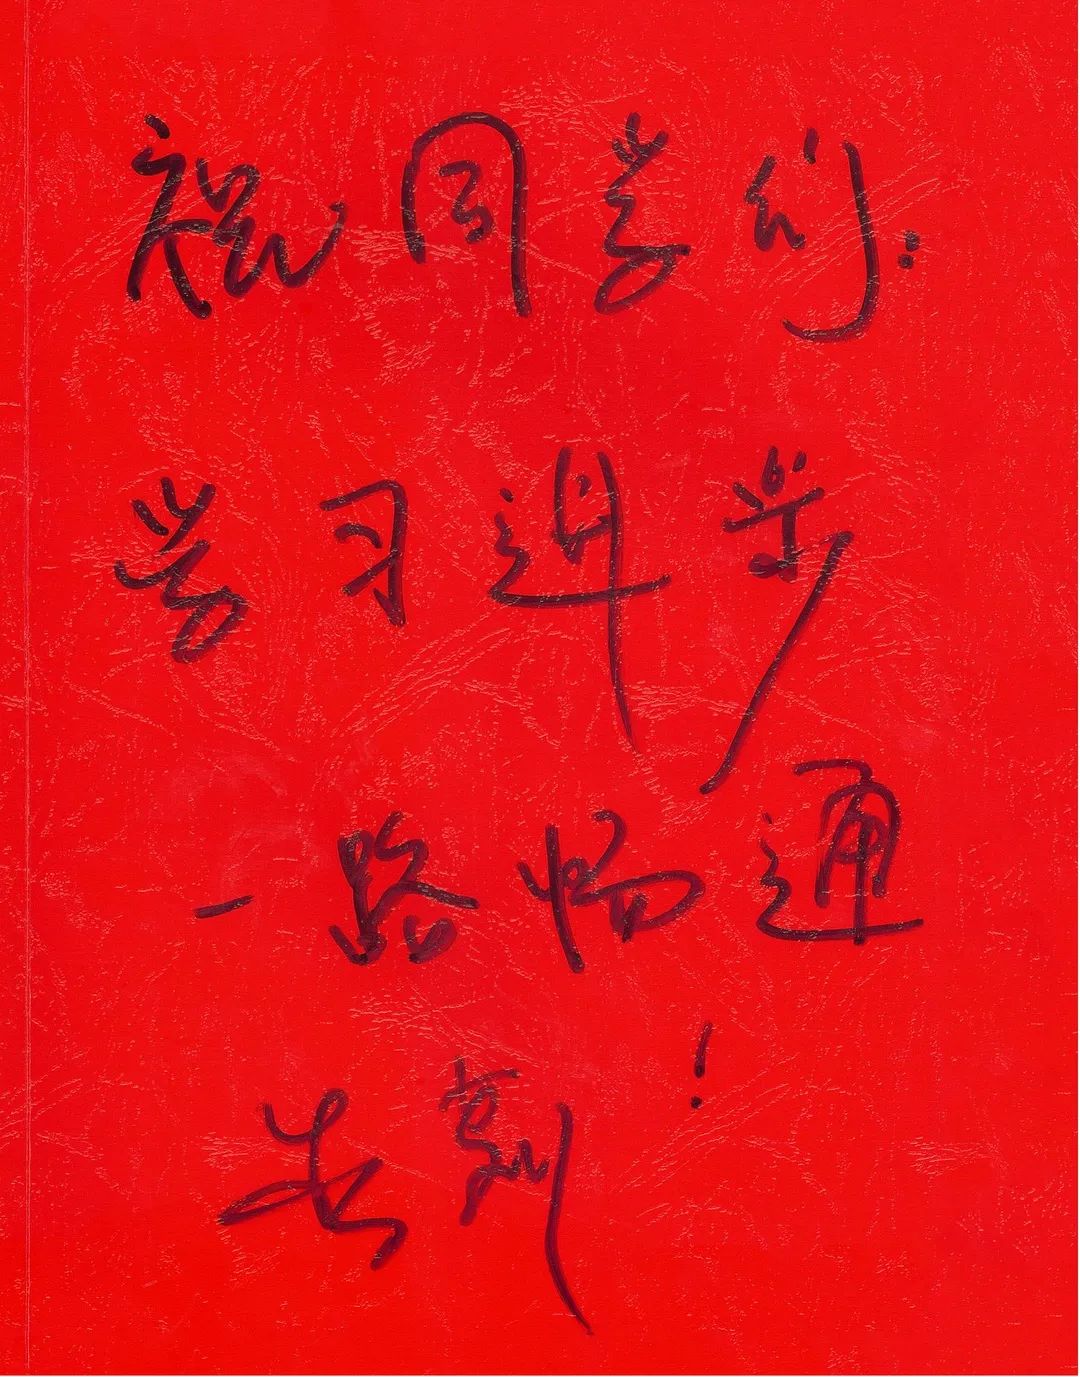 祝同学们:
学习进步
一路畅通
!